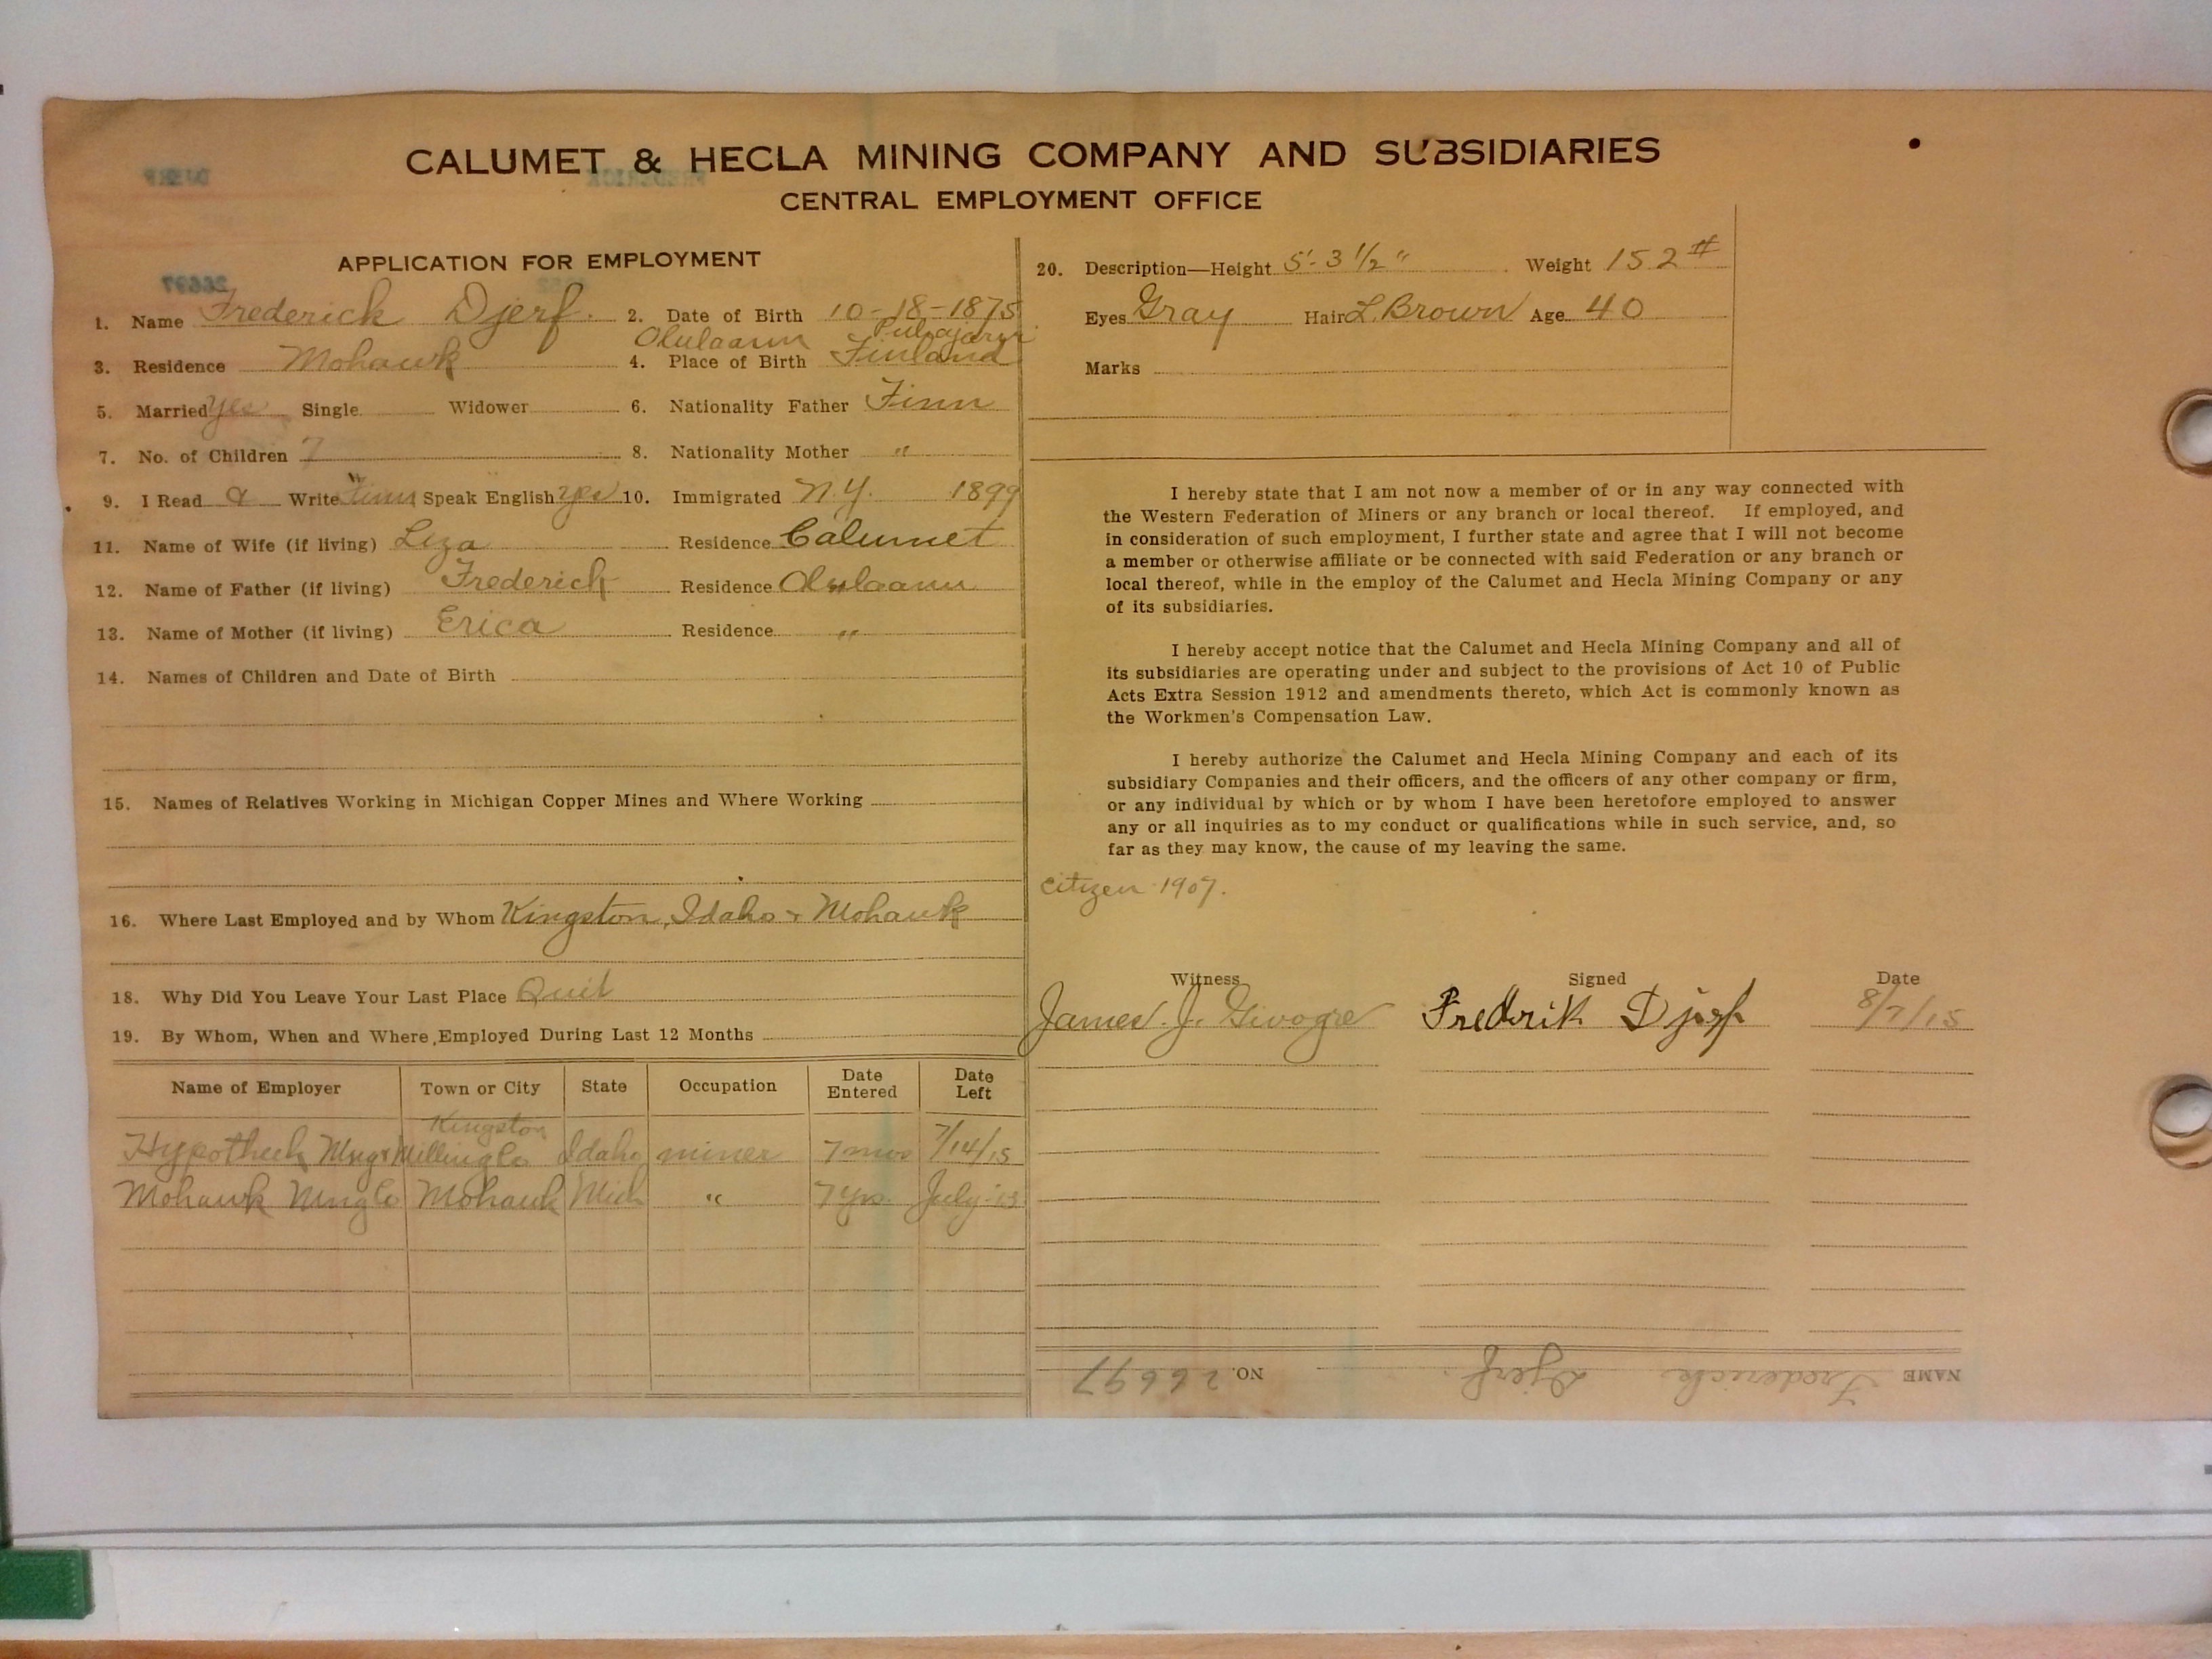 CALUMET & HECLA MINING COMPANY AND SUBSIDIARIES
CENTRAL EMPLOYMENT OFFICE
APPLICATION FOR EMPLOYMENT
1. Name Frederick Djerf. 2. Date of Birth 10-18-1875
3. Residence Mohawk 4. Place of Birth Finland
5. Married yes Single Widower 6. Nationality Father Finn
7. No. of Children 7 8. Nationality Mother "
9. I Read & Write Finn Speak English yes 10. Immigrated N.Y. 1899
11. Name of Wife (if living) Liza Residence Calumet
12. Name of Father (if living) Frederich Residence
13. Name of Mother (if living) Erica Residence "
14. Names of Children and Date of Birth
15. Names of Relatives Working in Michigan Copper Mines and Where Working
16. Where Last Employed and by Whom Kingston, Idaho & Mohawk
18. Why Did You Leave Your Last Place Quit
19. By Whom, When and Where Employed During Last 12 Months
Name of Employer Town or City State Occupation Date Entered Date Left
Kingston
Hypotheek Mng & Milling Co Idaho miner 7 mos 7/14/15
Mohawk Mng Co Mohawk Mich " 7 yrs. July-13
20. Description—Height 5'-3 1/2" Weight 152#
Eyes Gray Hair L.Brown Age 40
Marks
I hereby state that I am not now a member of or in any way connected with
the Western Federation of Miners or any branch or local thereof. If employed, and
in consideration of such employment, I further state and agree that I will not become
a member or otherwise affiliate or be connected with said Federation or any branch or
local thereof, while in the employ of the Calumet and Hecla Mining Company or any
of its subsidiaries.
I hereby accept notice that the Calumet and Hecla Mining Company and all of
its subsidiaries are operating under and subject to the provisions of Act 10 of Public
Acts Extra Session 1912 and amendments thereto, which Act is commonly known as
the Workmen's Compensation Law.
I hereby authorize the Calumet and Hecla Mining Company and each of its
subsidiary Companies and their officers, and the officers of any other company or firm,
or any individual by which or by whom I have been heretofore employed to answer
any or all inquiries as to my conduct or qualifications while in such service, and, so
far as they may know, the cause of my leaving the same.
citizen 1907.
Witness Signed Date
James. J. Fredrik Djerf 8/7/15
NAME Frederick Djerf. NO. 26697